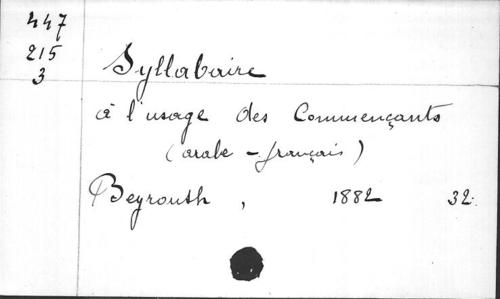 447
215
3
Syllabaire
à l'usage des Commençants
(arabe - français)
Beyrouth, 1882 32.